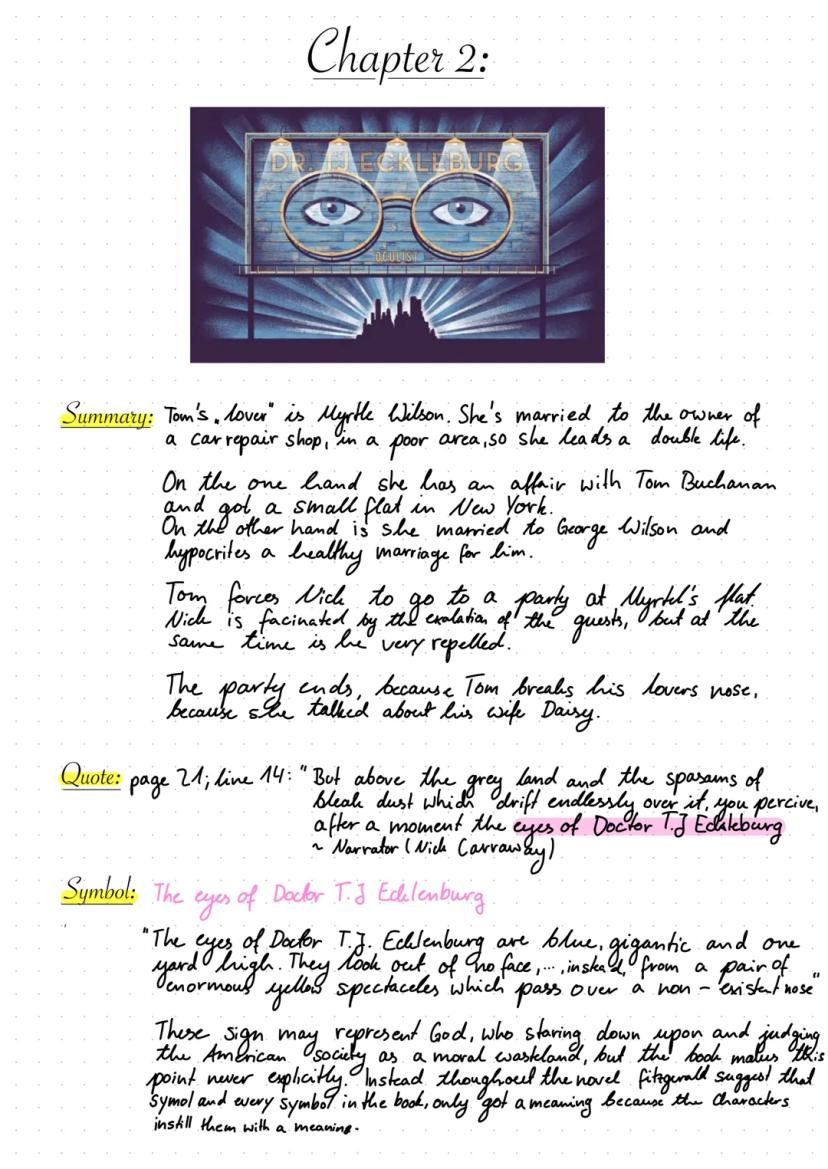 Chapter 2:
DR. TJ ECKLEBURG
OCULIST
Summary: Tom's „lover" is Myrtle Wilson. She's married to the owner of
a car repair shop, in a poor area, so she leads a double life.
On the one hand she has an affair with Tom Buchanan
and got a small flat in New York.
On the other hand is she married to George Wilson and
hypocrites a healthy marriage for him.
Tom forces Nick to go to a party at Myrtel's flat.
Nick is facinated by the of the guests, but at the
same time is he very repelled.
The party ends, because Tom breaks his lovers nose,
because she talked about his wife Daisy.
Quote: page 21; line 14: "But above the grey land and the spasams of
bleak dust which drift endlessly over it, you percive,
after a moment the eyes of Doctor T.J Eckleburg
~ Narrator (Nick Carraway)
Symbol: The eyes of Doctor T.J Ecklenburg
"The eyes of Doctor T.J. Ecklenburg are blue, gigantic and one
yard high. They look out of no face,...,instead, from a pair of
enormous yellow spectacles which pass over a non - existent nose"
These sign may represent God, who staring down upon and judging
the American society as a moral wasteland, but the book makes this
point never explicitly. Instead thoughout the novel fitzgerald suggest that
symol and every symbol in the book, only got a meaning because the characters
instill them with a meaning.